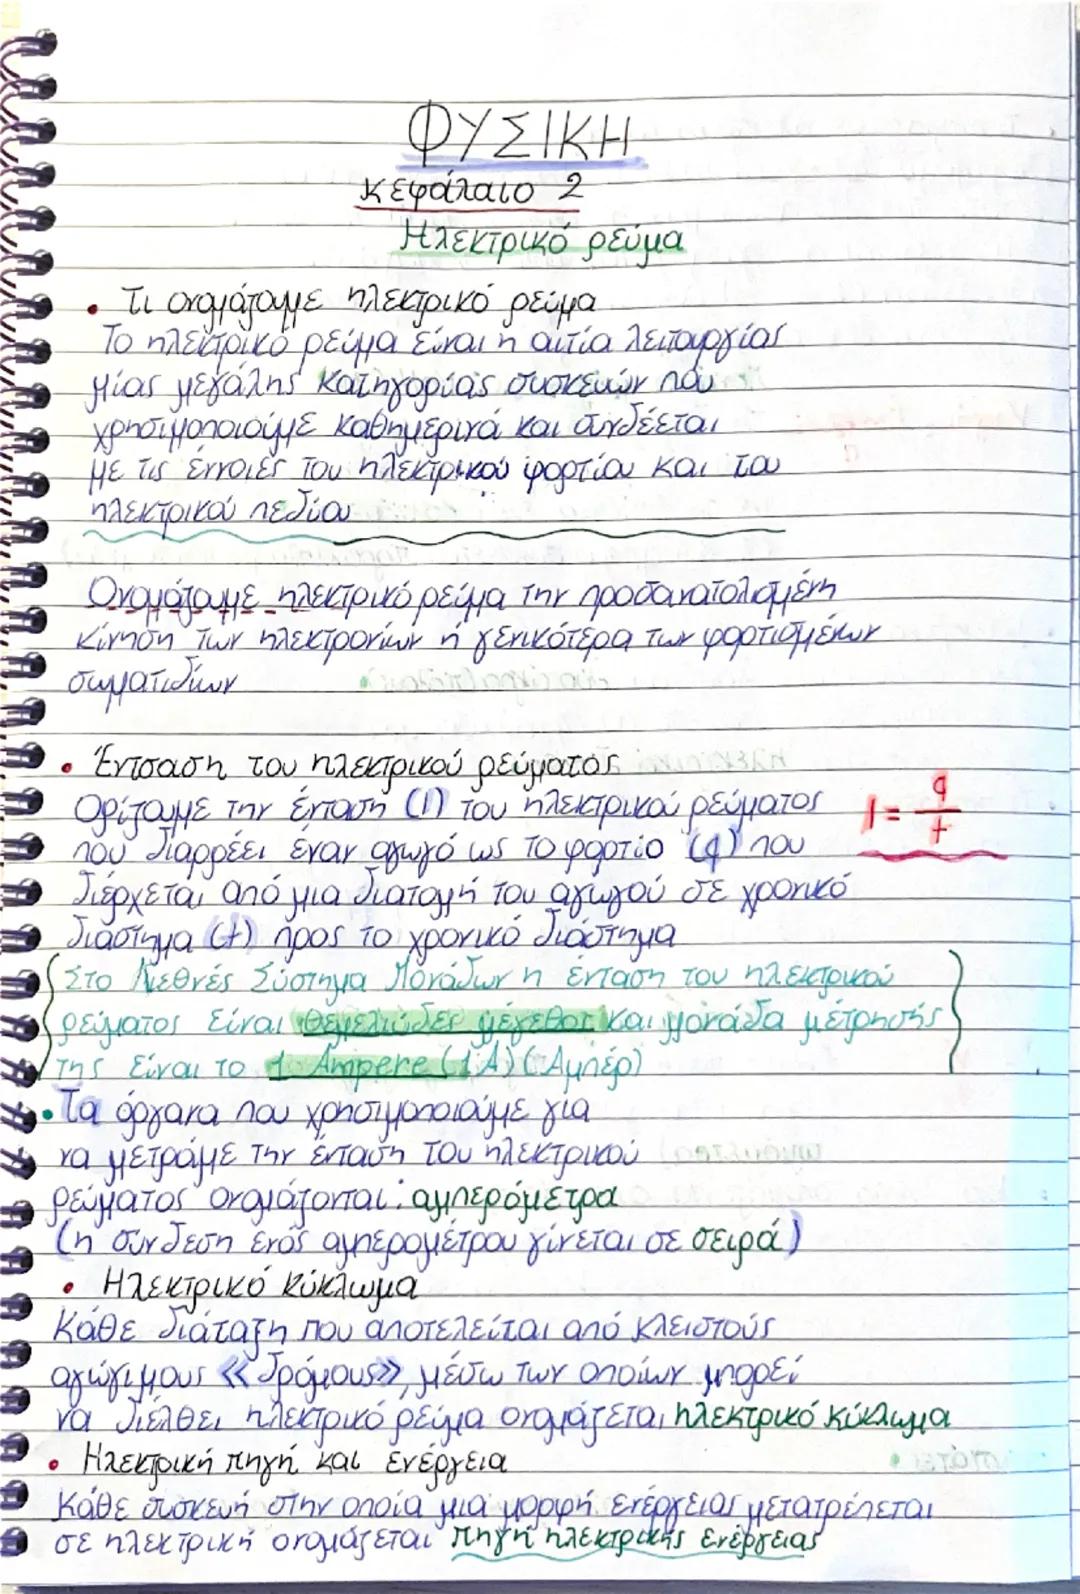 ΦΥΣΙΚΗ
κεφάλαιο 2
Ηλεκτρικό ρεύμα
• Τι ονομάζουμε ηλεκτρικό ρεύμα
Το ηλεκτρικό ρεύμα είναι η αιτία λειτουργίας
μίας μεγάλης κατηγορίας συσκευών που
χρησιμοποιούμε καθημερινά και συνδέεται
με τις έννοιες του ηλεκτρικού φορτίου και του
ηλεκτρικού πεδίου
Ονομάζουμε ηλεκτρικό ρεύμα την προσανατολισμένη
κίνηση των ηλεκτρονίων ή γενικότερα των φορτισμένων
σωματιδίων
• Έντσαση του ηλεκτρικού ρεύματος
Ορίζουμε την ένταση (I) του ηλεκτρικού ρεύματος
που διαρρέει έναν αγωγό ως το φορτίο (q) που
διέρχεται από μια διατομή του αγωγού σε χρονικό
διάστημα (t) προς το χρονικό διάστημα
I = q/t
Στο Διεθνές Σύστημα Μονάδων η ένταση του ηλεκτρικού
ρεύματος είναι θεμελιώδες μέγεθος και μονάδα μέτρησής
της είναι το 1 Ampere (1A) (Αμπέρ)
• Τα όργανα που χρησιμοποιούμε για
να μετράμε την ένταση του ηλεκτρικού
ρεύματος ονομάζονται: αμπερόμετρα
(η σύνδεση ενός αμπερομέτρου γίνεται σε σειρά)
• Ηλεκτρικό κύκλωμα
Κάθε διάταξη που αποτελείται από κλειστούς
αγώγιμους «δρόμους», μέσω των οποίων μπορεί
να διέλθει ηλεκτρικό ρεύμα ονομάζεται ηλεκτρικό κύκλωμα
• Ηλεκτρική πηγή και ενέργεια
Κάθε συσκευή στην οποία μια μορφή ενέργειας μετατρέπεται
σε ηλεκτρική ονομάζεται πηγή ηλεκτρικής ενέργειας